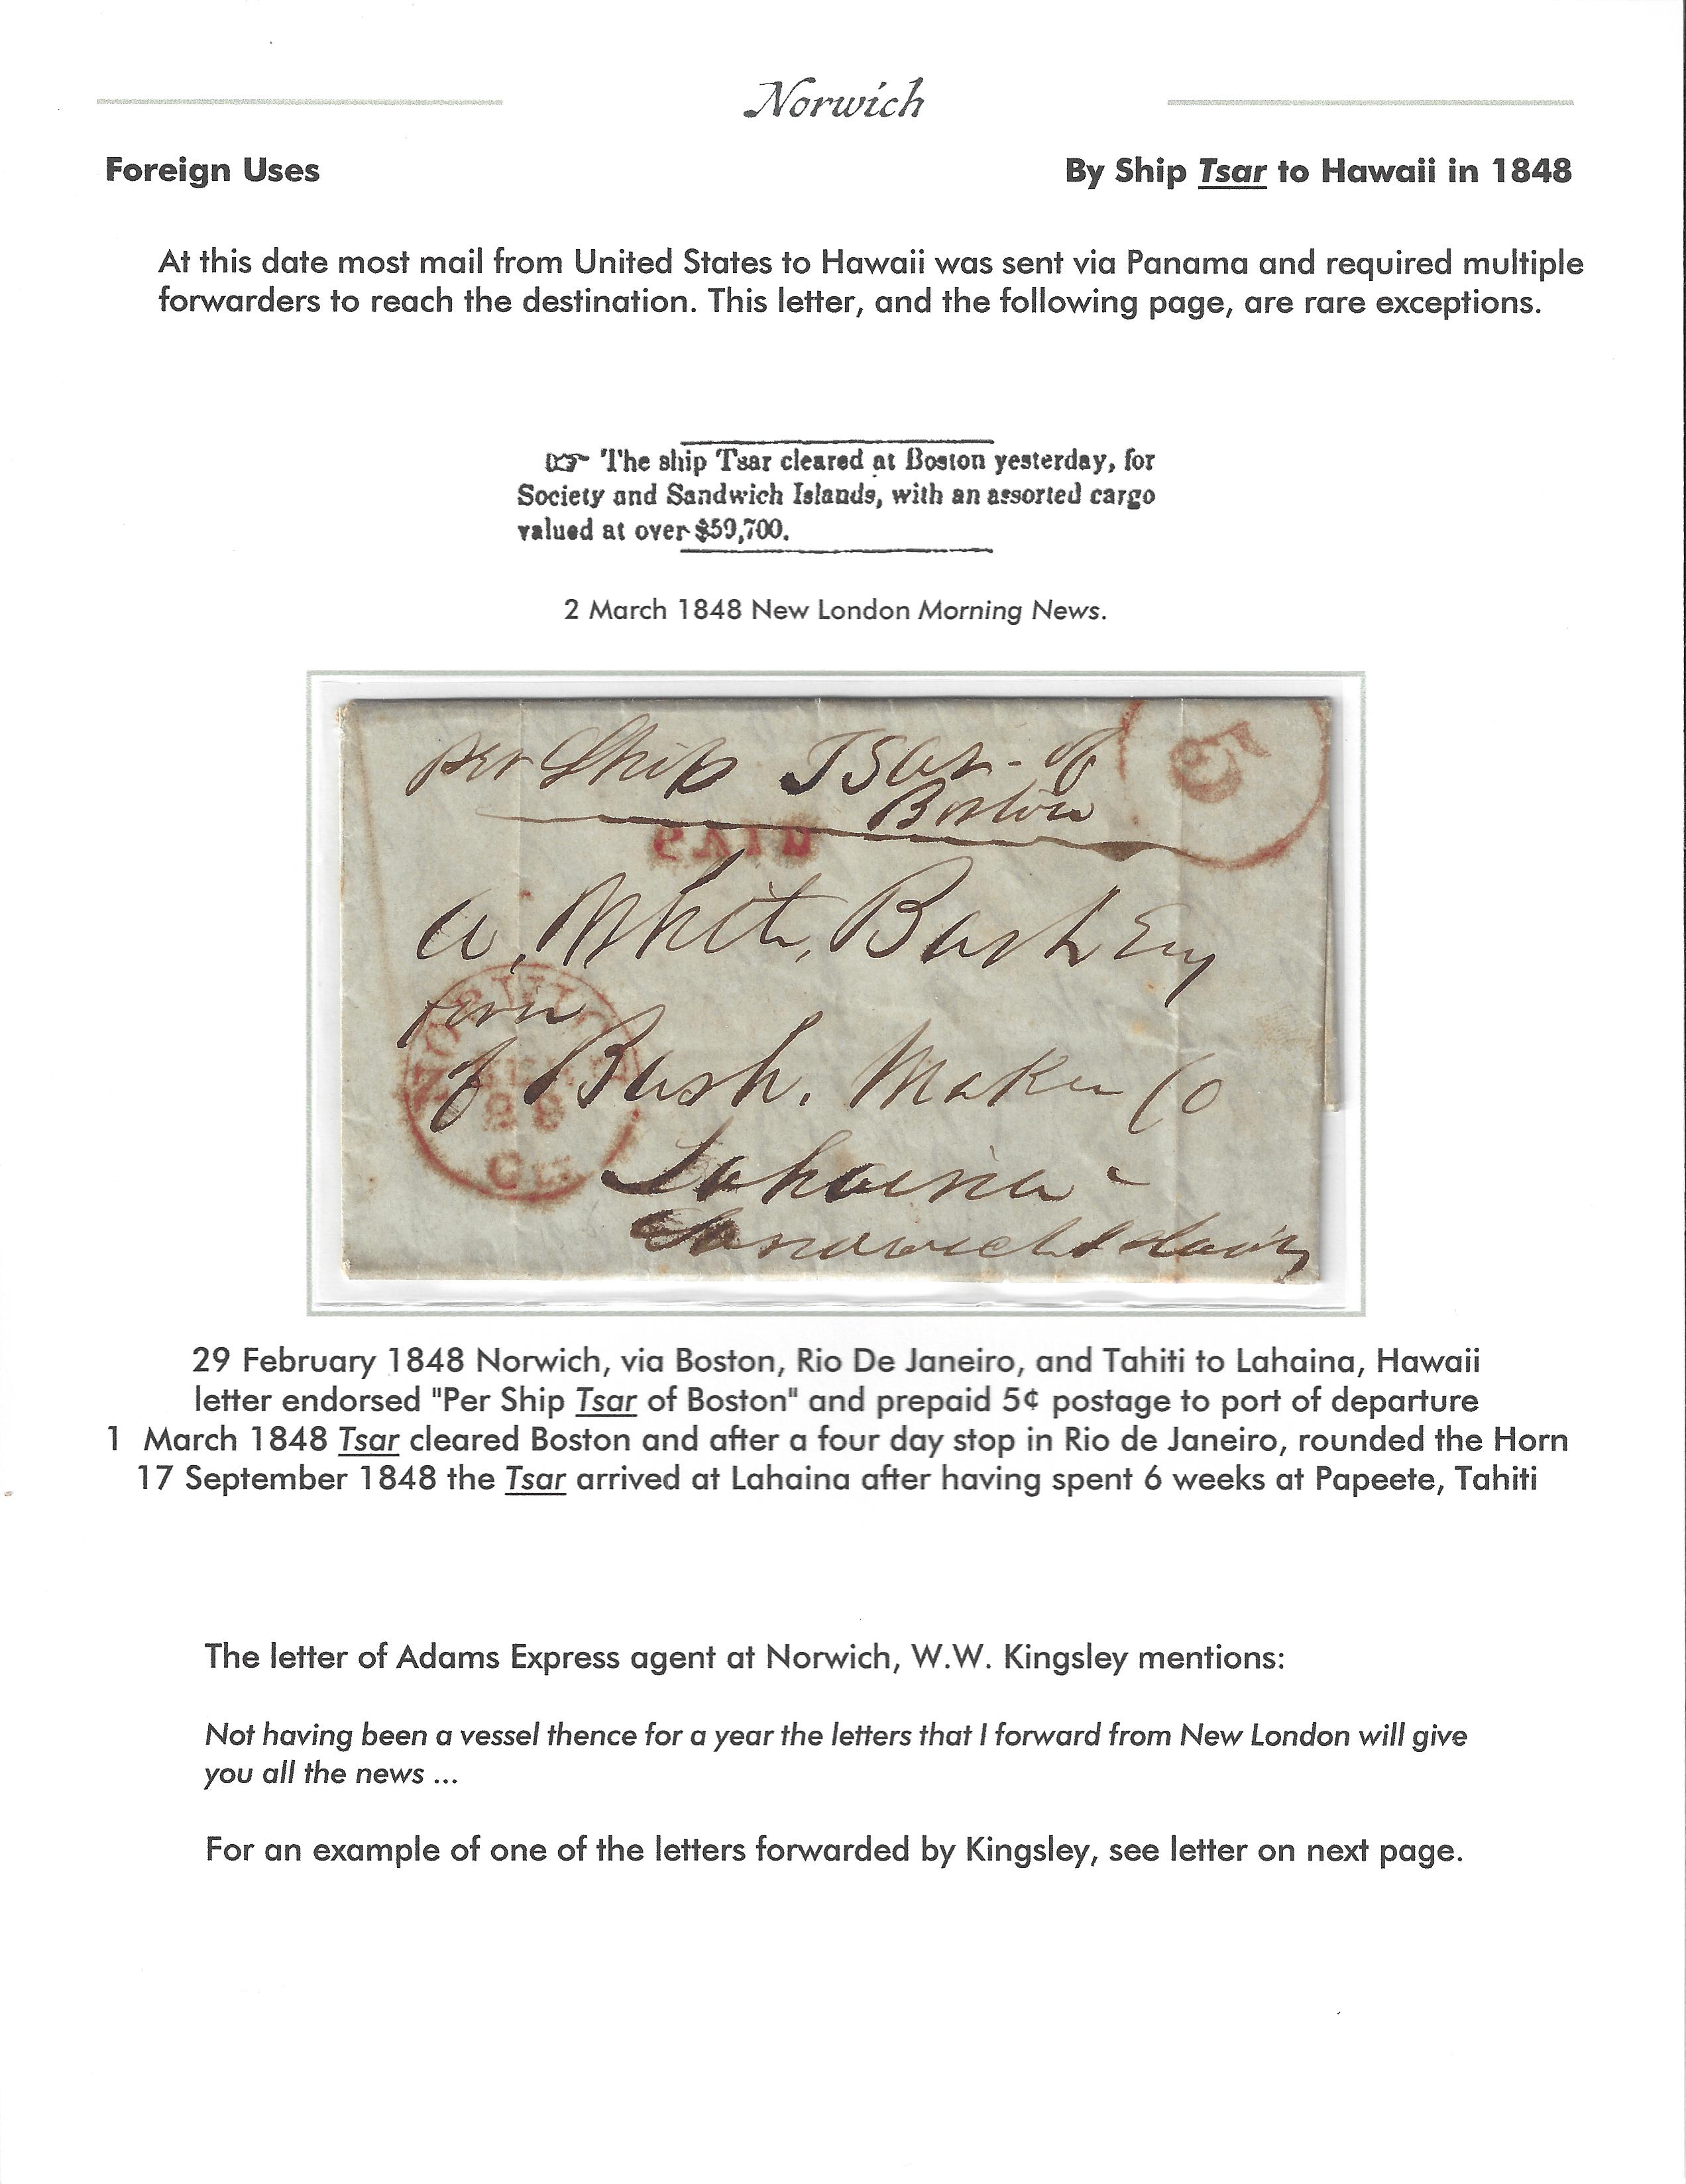 Norwich
Foreign Uses
By Ship Tsar to Hawaii in 1848
At this date most mail from United States to Hawaii was sent via Panama and required multiple
forwarders to reach the destination. This letter, and the following page, are rare exceptions.
☞ The ship Tsar cleared at Boston yesterday, for
Society and Sandwich Islands, with an assorted cargo
valued at over $59,700.
2 March 1848 New London Morning News.
per Ship Tsar - of
Boston
5
PAID
A. White, Bush Esq
firm
of Bush. Makee Co
Lahaina -
Sandwich Islands
NORWICH
Ct.
29 February 1848 Norwich, via Boston, Rio De Janeiro, and Tahiti to Lahaina, Hawaii
letter endorsed "Per Ship Tsar of Boston" and prepaid 5¢ postage to port of departure
1 March 1848 Tsar cleared Boston and after a four day stop in Rio de Janeiro, rounded the Horn
17 September 1848 the Tsar arrived at Lahaina after having spent 6 weeks at Papeete, Tahiti
The letter of Adams Express agent at Norwich, W.W. Kingsley mentions:
Not having been a vessel thence for a year the letters that I forward from New London will give
you all the news ...
For an example of one of the letters forwarded by Kingsley, see letter on next page.